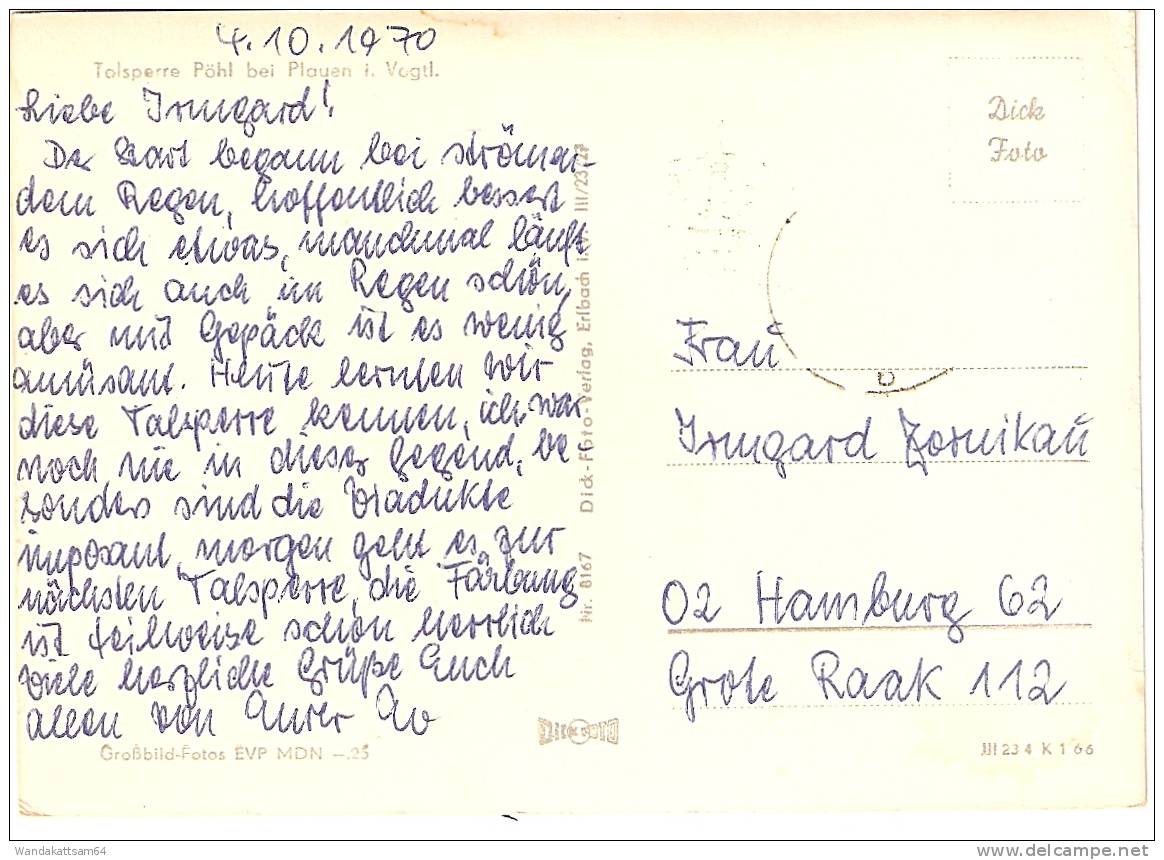 4.10.1970
Talsperre Pöhl bei Plauen i. Vogtl.
Liebe Irmgard!
Der Start begann bei strömen-
dem Regen, hoffentlich bessert
es sich etwas, manchmal läuft
es sich auch im Regen schön,
aber mit Gepäck ist es wenig
amüsant. Heute lernten wir
diese Talsperre kennen, ich war
noch nie in dieser Gegend, be
sonders sind die Viadukte
imposant, morgen geht es zur
nächsten Talsperre, die Färbung
ist teilweise schon herrlich
Viele herzliche Grüße Euch
allen von Eurer
Großbild-Fotos EVP MDN –.25
Nr. 8167 Dick-Foto-Verlag, Erlbach i. V. III/23/27
Dick
Foto
Frau
Irmgard Zornikau
02 Hamburg 62
Grote Raak 112
DICK FOTO
III 23 4 K 1 66
b
Wandakattsam64
delcampe.net